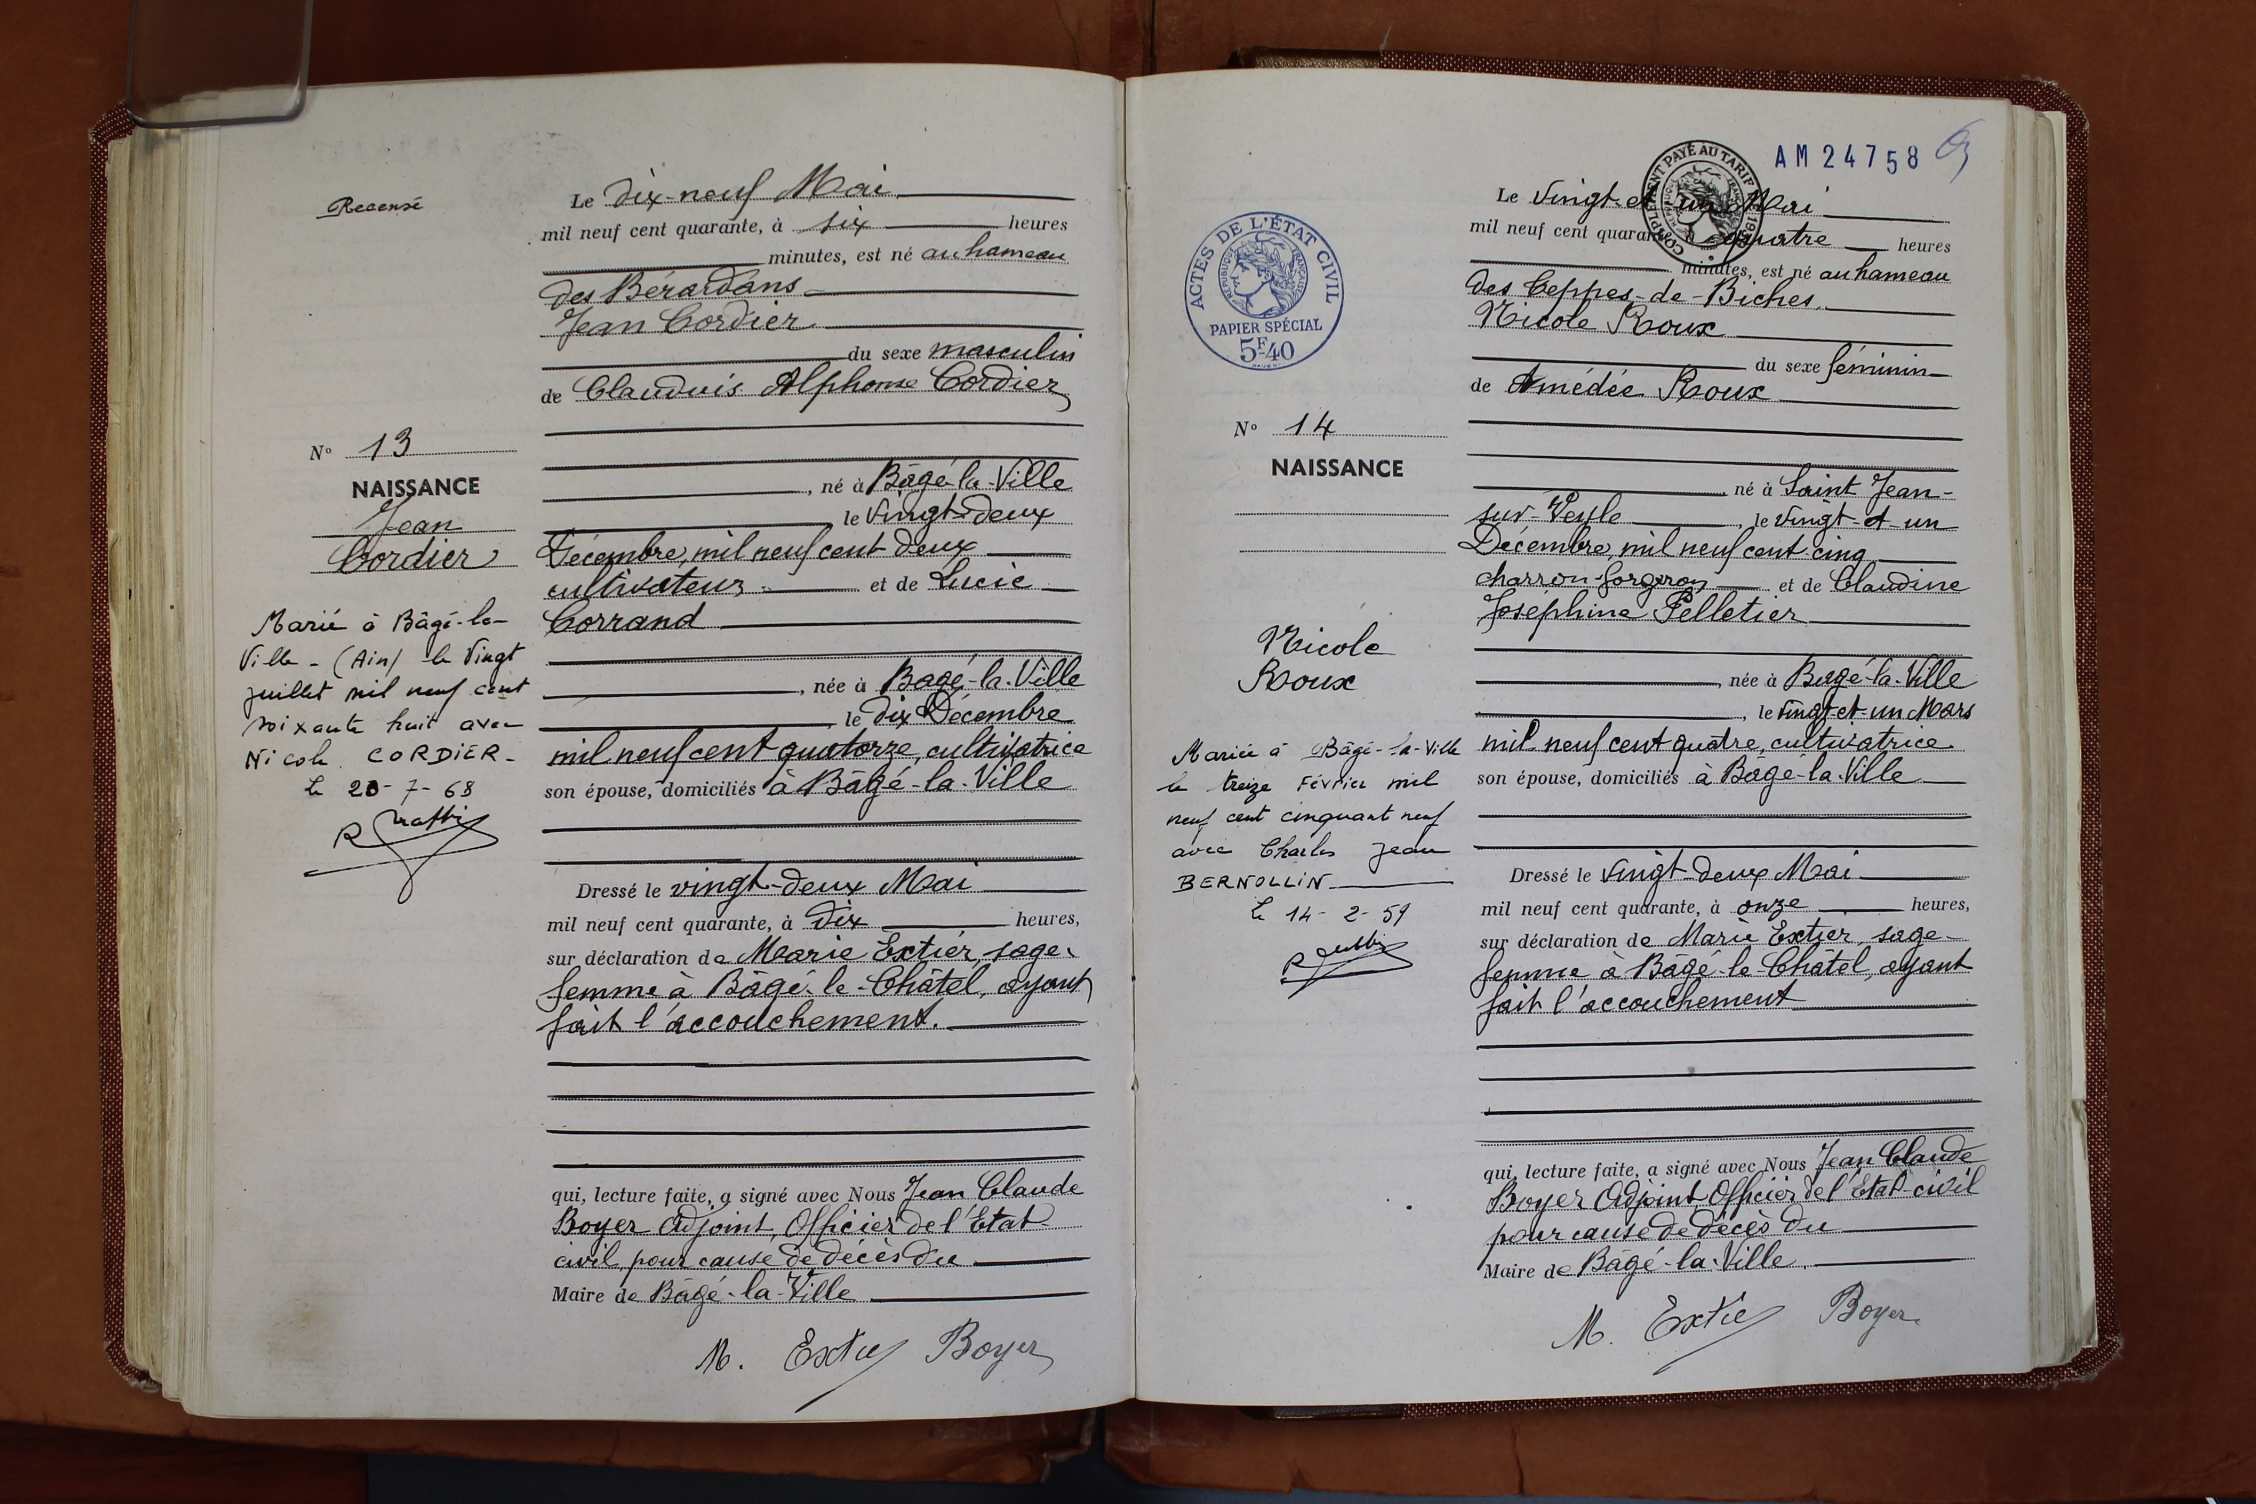 Recensé
Le dix-neuf Mai
mil neuf cent quarante, à six heures
minutes, est né au hameau
des Bérardans
Jean Cordier
du sexe masculin
de Claudius Alphonse Cordier
, né à Bâgé-la-Ville
le vingt-deux
Décembre, mil neuf cent deux
cultivateur et de Lucie
Corrand
, née à Bagé-la-Ville
le dix Décembre
mil neuf cent quatorze, cultivatrice
son épouse, domiciliés à Bâgé-la-Ville
Dressé le vingt-deux Mai
mil neuf cent quarante, à dix heures,
sur déclaration de Marie Extier, sage-
femme à Bâgé-le-Châtel, ayant
fait l'accouchement.
qui, lecture faite, a signé avec Nous Jean Claude
Boyer Adjoint, Officier de l'Etat-
civil, pour cause de décès du
Maire de Bâgé-la-Ville
M. Extier Boyer
N° 13
NAISSANCE
Jean
Cordier
Marié à Bâgé-la-
Ville - (Ain) le vingt
juillet mil neuf cent
soixante huit avec
Nicole CORDIER-
le 20-7-68
AM 24758
COMPLÉMENT PAYÉ AU TARIF
ACTES DE L'ÉTAT CIVIL
RÉPUBLIQUE FRANÇAISE
PAPIER SPÉCIAL
5F40
Le vingt-et-un Mai
mil neuf cent quarante à quatre heures
minutes, est né au hameau
des Ceppes-de-Biches,
Nicole Roux
du sexe féminin
de Amédée Roux
né à Saint Jean-
sur-Veyle, le vingt-et-un
Décembre, mil neuf cent cinq
charron-forgeron et de Claudine
Joséphine Pelletier
, née à Bagé-la-Ville
, le vingt-et-un Mars
mil neuf cent quatre, cultivatrice
son épouse, domiciliés à Bâgé-la-Ville
Dressé le vingt-deux Mai
mil neuf cent quarante, à onze heures,
sur déclaration de Marie Extier, sage-
femme à Bâgé-le-Châtel, ayant
fait l'accouchement
qui, lecture faite, a signé avec Nous Jean Claude
Boyer Adjoint, Officier de l'Etat-civil
pour cause de décès du
Maire de Bâgé-la-Ville.
M. Extier Boyer
N° 14
NAISSANCE
Nicole
Roux
Mariée à Bâgé-la-Ville
le treize Février mil
neuf cent cinquant neuf
avec Charles Jean
BERNOLLIN
le 14-2-59